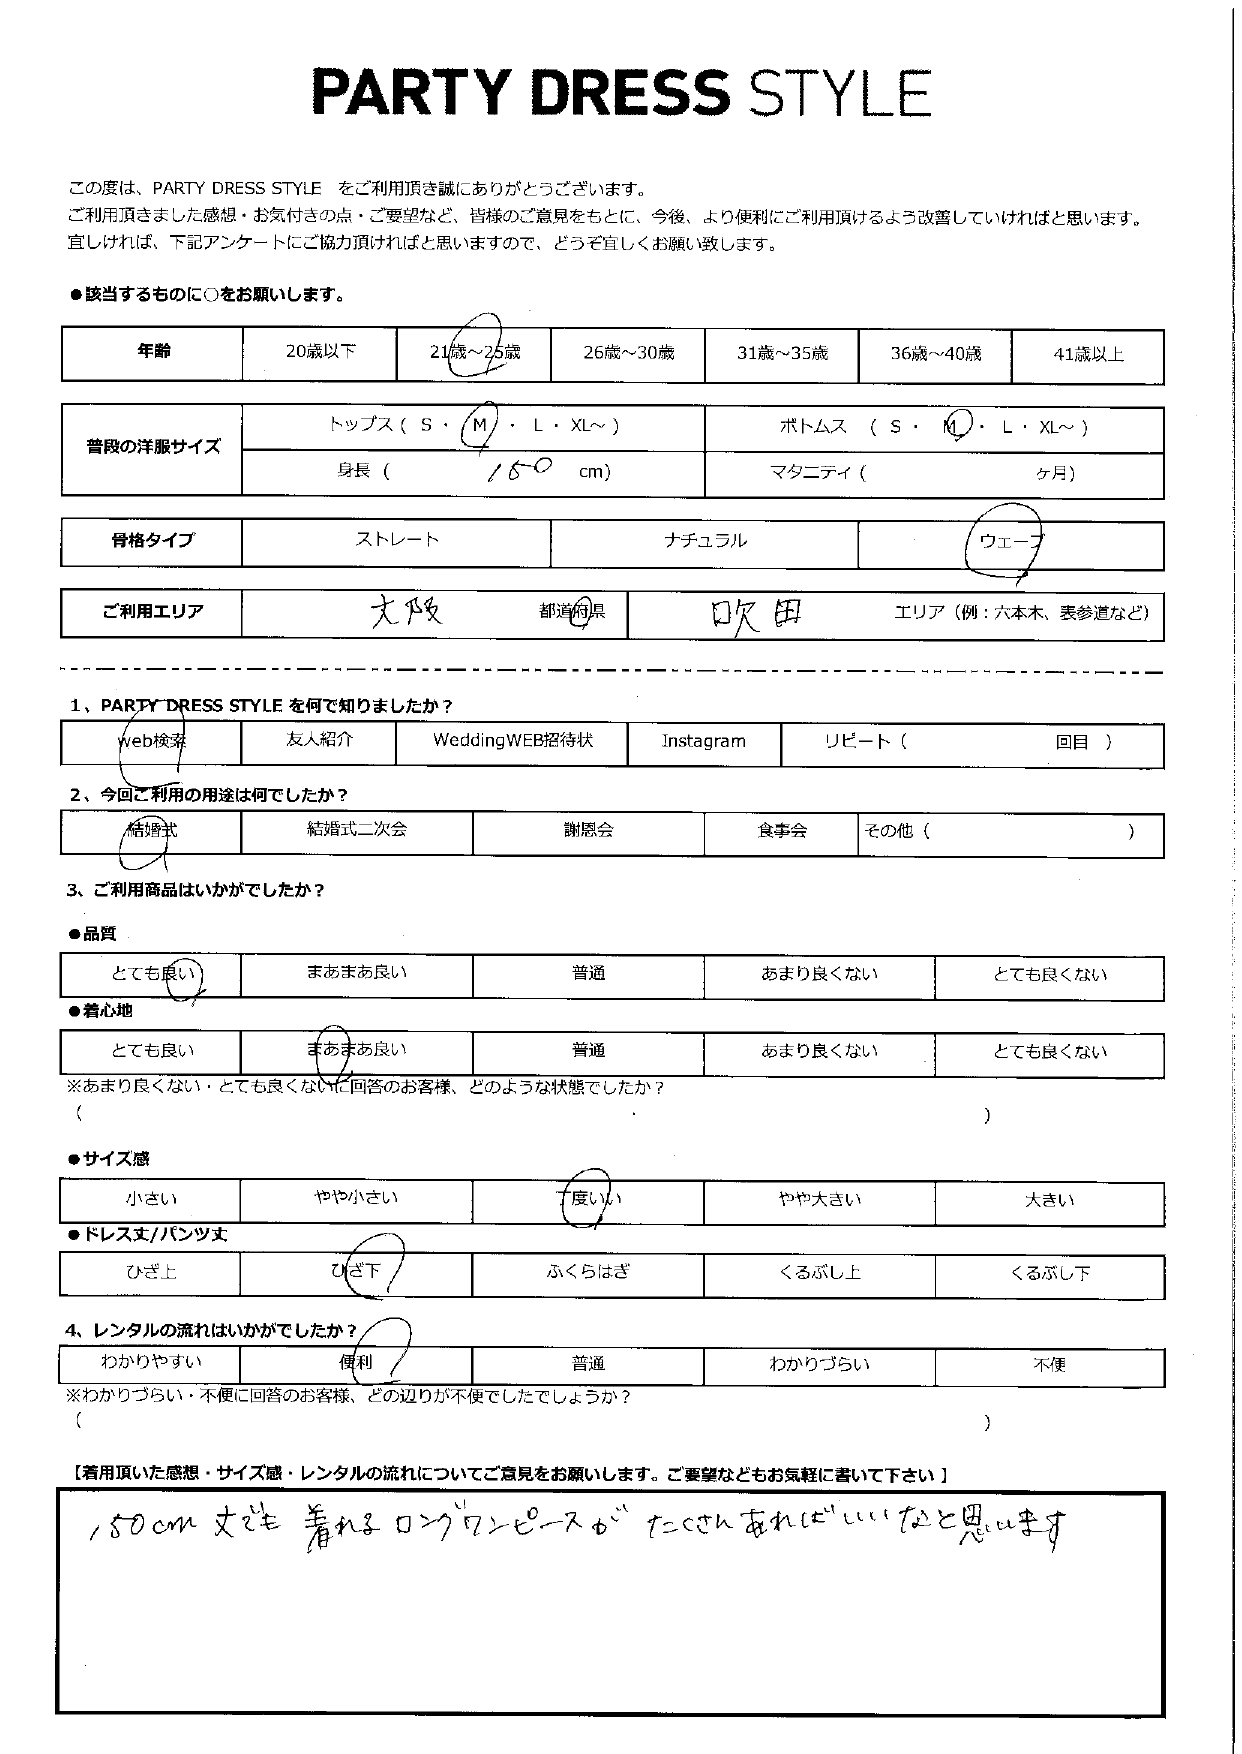 PARTY DRESS STYLE
この度は、PARTY DRESS STYLE　をご利用頂き誠にありがとうございます。
ご利用頂きました感想・お気付きの点・ご要望など、皆様のご意見をもとに、今後、より便利にご利用頂けるよう改善していければと思います。
宜しければ、下記アンケートにご協力頂ければと思いますので、どうぞ宜しくお願い致します。
●該当するものに○をお願いします。
年齢 20歳以下 21歳～25歳 26歳～30歳 31歳～35歳 36歳～40歳 41歳以上
普段の洋服サイズ トップス ( S ・ M ・ L ・ XL～ ) ボトムス ( S ・ M ・ L ・ XL～ )
身長 ( 150 cm) マタニティ ( ヶ月)
骨格タイプ ストレート ナチュラル ウェーブ
ご利用エリア 大阪 都道府県 吹田 エリア（例：六本木、表参道など）
1、PARTY DRESS STYLE を何で知りましたか？
web検索 友人紹介 WeddingWEB招待状 Instagram リピート（ 回目 ）
2、今回ご利用の用途は何でしたか？
結婚式 結婚式二次会 謝恩会 食事会 その他（ ）
3、ご利用商品はいかがでしたか？
●品質
とても良い まあまあ良い 普通 あまり良くない とても良くない
●着心地
とても良い まあまあ良い 普通 あまり良くない とても良くない
※あまり良くない・とても良くないに回答のお客様、どのような状態でしたか？
（ ）
●サイズ感
小さい やや小さい 丁度いい やや大きい 大きい
●ドレス丈/パンツ丈
ひざ上 ひざ下 ふくらはぎ くるぶし上 くるぶし下
4、レンタルの流れはいかがでしたか？
わかりやすい 便利 普通 わかりづらい 不便
※わかりづらい・不便に回答のお客様、どの辺りが不便でしたでしょうか？
（ ）
【着用頂いた感想・サイズ感・レンタルの流れについてご意見をお願いします。ご要望などもお気軽に書いて下さい 】
150cm 丈でも 着れる ロングワンピースが たくさんあればいいなと思います